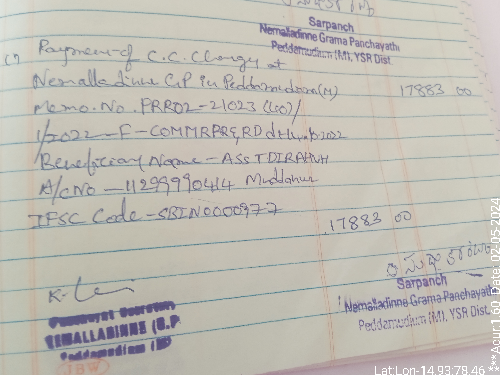 Sarpanch
Nemalladinne Grama Panchayathi
Peddamudium (M), YSR Dist.
Payment of C.C. Charges at
Nemalladinne G.P in Peddamudium (M) 17883 00
Memo. No. PRR02-21023
1/2022-F-COMMRPR&RD
Beneficiary Name - ASSTDIRAHVH
A/c No - 11299990414 Muddanur
IFSC Code - SBIN0000977
17883 00
Sarpanch
Nemalladinne Grama Panchayathi
Peddamudium (M), YSR Dist.
Panchayat Secretary
NEMALLADINNE G.P
Peddamudium (M)
Lat:Lon-14.93:78.46 ***Acur:1.60 Date: 02-05-2024